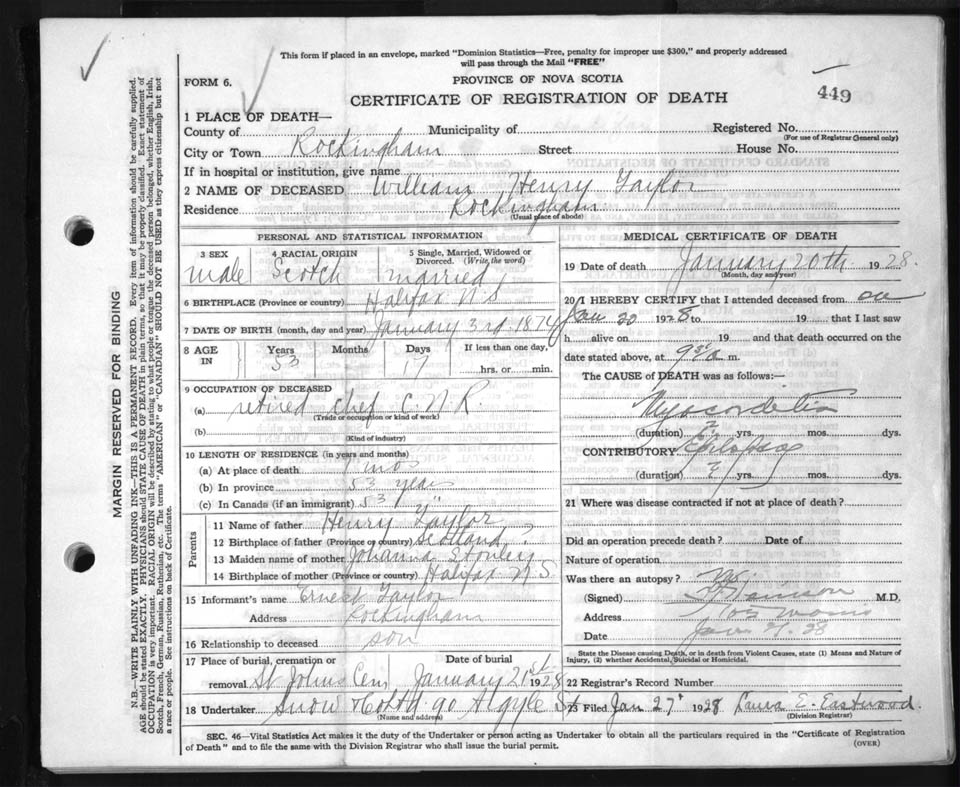 This form if placed in an envelope, marked "Dominion Statistics—Free, penalty for improper use $300," and properly addressed
will pass through the Mail "FREE"
FORM 6.
PROVINCE OF NOVA SCOTIA
CERTIFICATE OF REGISTRATION OF DEATH
449
1 PLACE OF DEATH—
County of Municipality of Registered No.
(For use of Registrar General only)
City or Town Rockingham Street House No.
If in hospital or institution, give name
2 NAME OF DECEASED William Henry Taylor
Residence Rockingham
(Usual place of abode)
PERSONAL AND STATISTICAL INFORMATION
3 SEX 4 RACIAL ORIGIN 5 Single, Married, Widowed or
Divorced. (Write the word)
male Scotch married
6 BIRTHPLACE (Province or country) Halifax N S
7 DATE OF BIRTH (month, day and year) January 3rd. 1874
8 AGE IN Years Months Days If less than one day,
53 17 hrs. or min.
9 OCCUPATION OF DECEASED
(a) retired chef C. N. R.
(Trade occupation or kind of work)
(b)
(Kind of industry)
10 LENGTH OF RESIDENCE (in years and months)
(a) At place of death mos
(b) In province 53 years
(c) In Canada (if an immigrant) 53 "
Parents
11 Name of father Henry Taylor
12 Birthplace of father (Province or country) Scotland
13 Maiden name of mother Johanna
14 Birthplace of mother (Province or country) Halifax N.S
15 Informant's name Ernest Taylor
Address Rockingham
16 Relationship to deceased son
17 Place of burial, cremation or Date of burial
removal St Johns Cem January 21st 1928
18 Undertaker Snow & Co Ltd 90 Argyle St
(Name and address)
MEDICAL CERTIFICATE OF DEATH
19 Date of death January 20th 1928.
(Month, day and year)
20 I HEREBY CERTIFY that I attended deceased from on
Jan 20 1928 to 19 that I last saw
h alive on 19 and that death occurred on the
date stated above, at a m.
The CAUSE OF DEATH was as follows:—
(duration) ? yrs. mos. dys.
CONTRIBUTORY Epilepsy
(duration) ? yrs. mos. dys.
21 Where was disease contracted if not at place of death?
Did an operation precede death? Date of
Nature of operation
Was there an autopsy? no.
(Signed) M.D.
Address
Date Jan 21. 28
State the Disease causing Death, or in death from Violent Causes, state (1) Means and Nature of
Injury, (2) whether Accidental, Suicidal or Homicidal.
22 Registrar's Record Number
23 Filed Jan 27" 1928 Laura E. Eastwood.
(Division Registrar)
SEC. 46—Vital Statistics Act makes it the duty of the Undertaker or person acting as Undertaker to obtain all the particulars required in the "Certificate of Registration
of Death" and to file the same with the Division Registrar who shall issue the burial permit. (OVER)
MARGIN RESERVED FOR BINDING
N.B.—WRITE PLAINLY WITH UNFADING INK—THIS IS A PERMANENT RECORD. Every item of information should be carefully supplied.
AGE should be stated EXACTLY. PHYSICIANS should STATE CAUSE OF DEATH in plain terms, so that it may be properly classified. Exact statement of
OCCUPATION is very important. RACIAL ORIGIN will be described by stating to what people or tongue the deceased person belonged, whether English, Irish,
Scotch, French, German, Russian, Ruthenian, etc. The terms "AMERICAN" or "CANADIAN" SHOULD NOT BE USED as they express citizenship but not
a race or people. See instructions on back of Certificate.